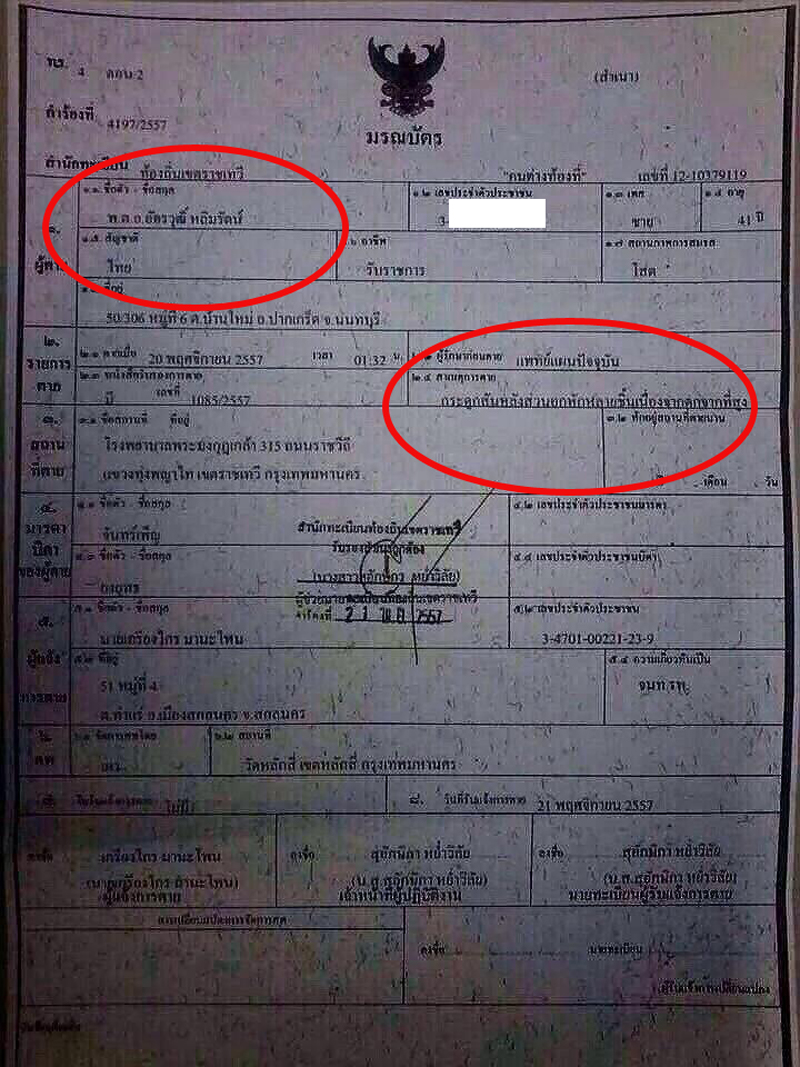 ทร. 4 ตอน 2
(สำเนา)
คำร้องที่ 4197/2557
มรณบัตร
สำนักทะเบียน ท้องถิ่นเขตราชเทวี "คนต่างท้องที่" เลขที่ 12-10379119
๑. ผู้ตาย
๑.๑ ชื่อตัว - ชื่อสกุล
พ.ต.อ.อัครวุฒิ์ หลิมรัตน์
๑.๒ เลขประจำตัวประชาชน
3-
๑.๓ เพศ
ชาย
๑.๔ อายุ
41 ปี
๑.๕ สัญชาติ
ไทย
๑.๖ อาชีพ
รับราชการ
๑.๗ สถานภาพการสมรส
โสด
ที่อยู่
50/306 หมู่ที่ 6 ต.บ้านใหม่ อ.ปากเกร็ด จ.นนทบุรี
๒. รายการตาย
๒.๑ ตายเมื่อ 20 พฤศจิกายน 2557 เวลา 01:32 น.
ผู้รักษาก่อนตาย แพทย์แผนปัจจุบัน
๒.๓ หนังสือรับรองการตาย
มี เลขที่ 1085/2557
๒.๔ สาเหตุการตาย
กระดูกสันหลังส่วนอกหักหลายชิ้นเนื่องจากตกจากที่สูง
๓. สถานที่ตาย
๓.๑ ชื่อสถานที่ ที่อยู่
โรงพยาบาลพระมงกุฎเกล้า 315 ถนนราชวิถี
แขวงทุ่งพญาไท เขตราชเทวี กรุงเทพมหานคร
๓.๒ พักอยู่สถานที่ตายนาน
เดือน วัน
๔. มารดา บิดา ของผู้ตาย
๔.๑ ชื่อตัว - ชื่อสกุล
จันทร์เพ็ญ
๔.๒ เลขประจำตัวประชาชนมารดา
๔.๓ ชื่อตัว - ชื่อสกุล
๔.๔ เลขประจำตัวประชาชนบิดา
สำนักทะเบียนท้องถิ่นเขตราชเทวี
21 2557
๕. ผู้แจ้งการตาย
๕.๑ ชื่อตัว - ชื่อสกุล
นายเกรียงไกร มานะโพน
๕.๒ เลขประจำตัวประชาชน
3-4701-00221-23-9
ที่อยู่
51 หมู่ที่ 4
ต.ท่าแร่ อ.เมืองสกลนคร จ.สกลนคร
๕.๔ ความเกี่ยวพันเป็น
จนท.รพ.
๖. ศพ
๖.๑ จัดการศพโดย
เผา
๖.๒ สถานที่
วัดหลักสี่ เขตหลักสี่ กรุงเทพมหานคร
ไม่มี
๘. วันที่รับแจ้งการตาย 21 พฤศจิกายน 2557
ลงชื่อ เกรียงไกร มานะโพน
(นายเกรียงไกร มานะโพน)
ผู้แจ้งการตาย
ลงชื่อ สุอักษิกา หย่ำวิลัย
(น.ส.สุอักษิกา หย่ำวิลัย)
เจ้าหน้าที่ผู้ปฏิบัติงาน
ลงชื่อ สุอักษิกา หย่ำวิลัย
(น.ส.สุอักษิกา หย่ำวิลัย)
นายทะเบียนผู้รับแจ้งการตาย
การเปลี่ยนแปลงการจัดการศพ
ลงชื่อ นายทะเบียน